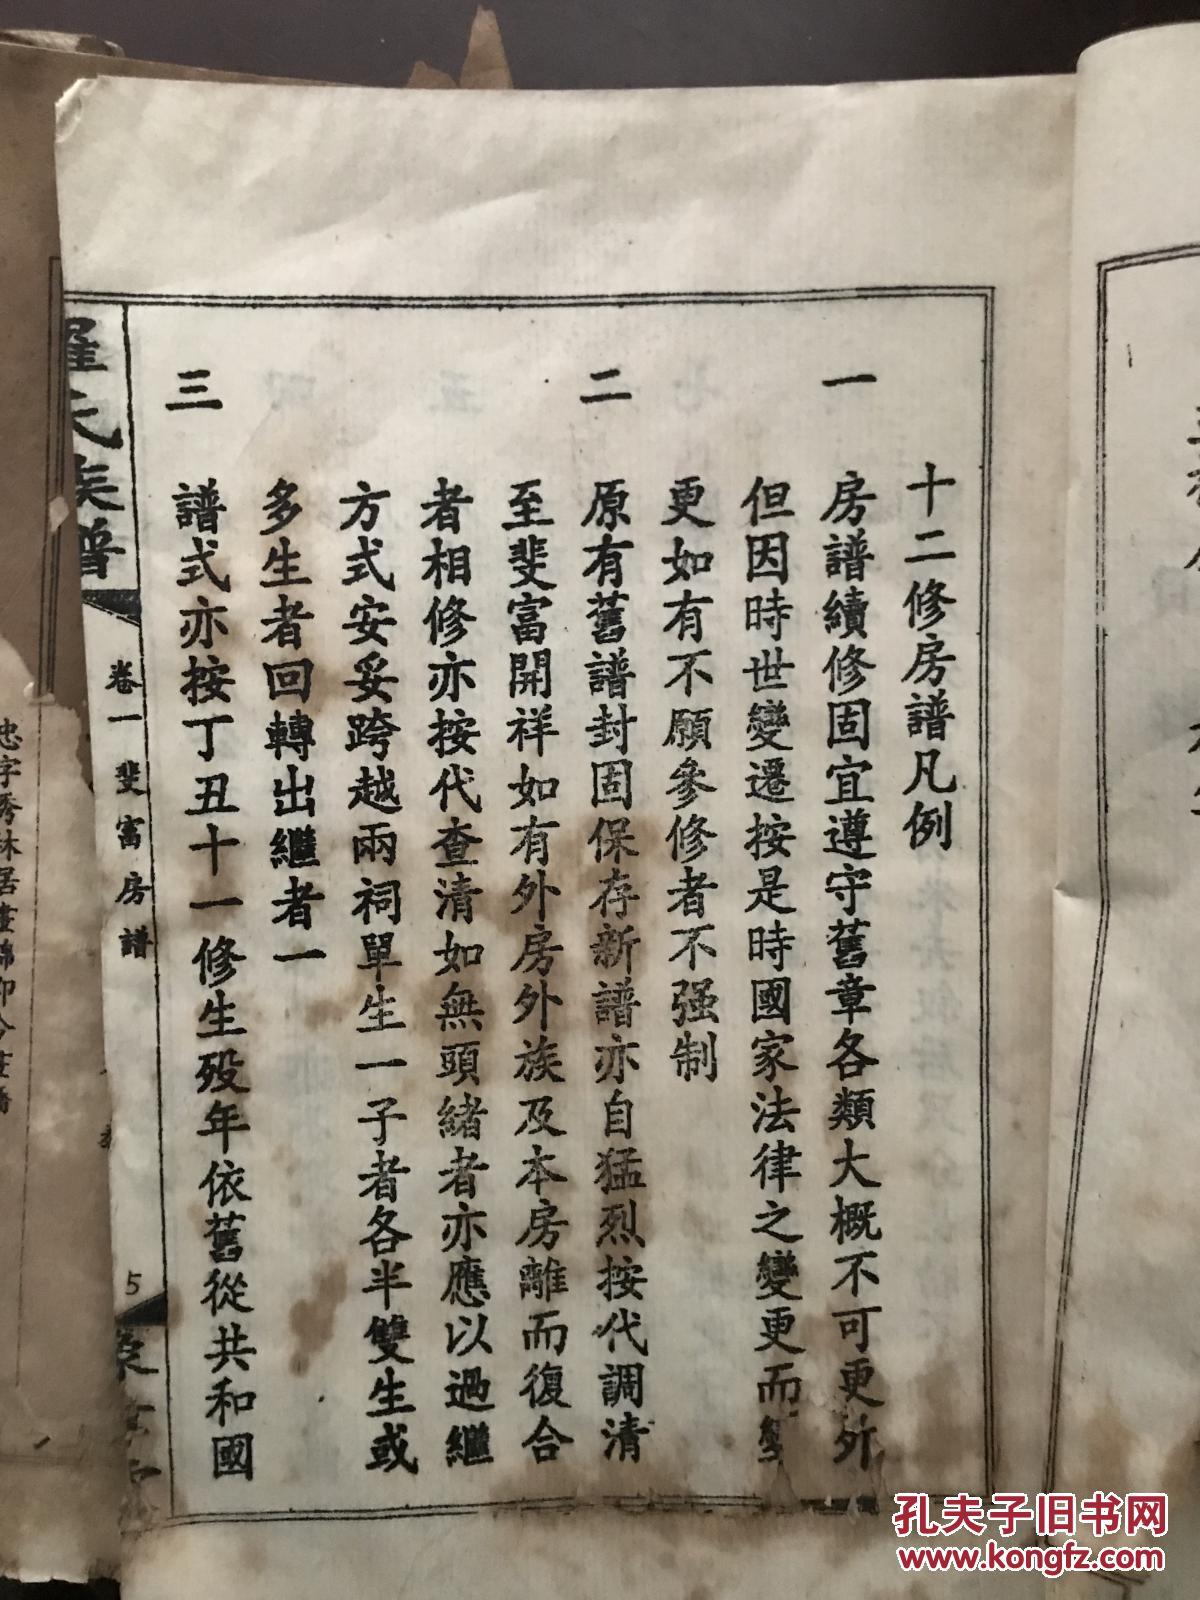 十二修房譜凡例
一 房譜續修固宜遵守舊章各類大概不可更
但因時世變遷按是時國家法律之變更而變
更如有不願參修者不强制
二 原有舊譜封固保存新譜亦自猛烈按代調清
至斐富開祥如有外房外族及本房離而復合
者相修亦按代查清如無頭緒者亦應以過繼
方式安妥跨越兩祠單生一子者各半雙生或
多生者回轉出繼者一
三 譜式亦按丁丑十一修生殁年依舊從共和國
羅氏族譜
卷一 斐富房譜
5
孔夫子旧书网
www.kongfz.com